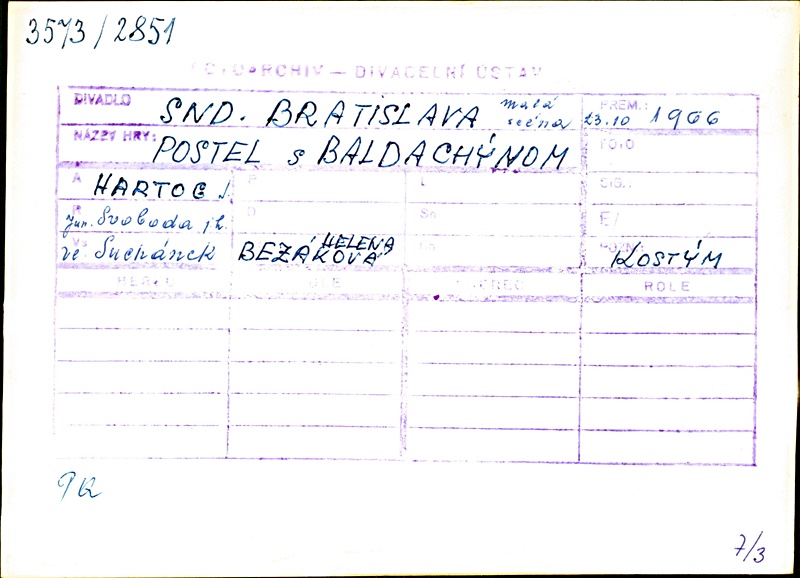 3573/2851
FOTOARCHIV — DIVADELNÍ ÚSTAV
DIVADLO SND. BRATISLAVA malá scéna PREM.: 23.10 1966
NÁZEV HRY: POSTEL s BALDACHÝNOM FOTO
A HARTOG J. P L SIG.:
R jun. Svoboda j.h. D Sn E/
Vs Suchánek BEZÁKOVÁ HELENA POZN. KOSTÝM
HEREC ROLE HEREC ROLE
7/3